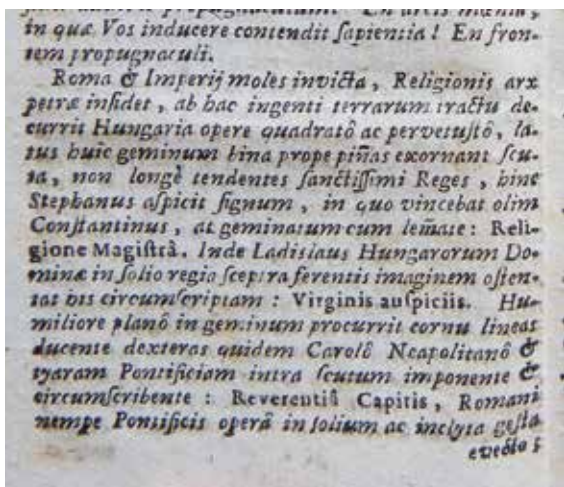 propugnaculum! En arcis mœnia,
in quæ Vos inducere contendit ſapientia! En fron-
tem propugnaculi.
Roma & Imperij moles invicta, Religionis arx
petræ inſidet, ab hac ingenti terrarum tractu de-
currit Hungaria opere quadratô ac pervetuſtô, la-
tus huic geminum bina prope piñas exornant ſcu-
ta, non longè tendentes ſanctiſſimi Reges, hinc
Stephanus aſpicit ſignum, in quo vincebat olim
Conſtantinus, at geminatum cum lem̃ate: Reli-
gione Magiſtrâ. Inde Ladislaus Hungarorum Do-
minæ in ſolio regio ſceptra ferentis imaginem oſten-
tat his circumſcriptam: Virginis auſpiciis. Hu-
miliore planô in geminum procurrit cornu lineas
ducente dexteras quidem Carolô Neapolitanô &
tyaram Pontificiam intra ſcutum imponente &
circumſcribente: Reverentiâ Capitis, Romani
nempe Pontificis operâ in ſolium ac inclyta geſta
evecto;